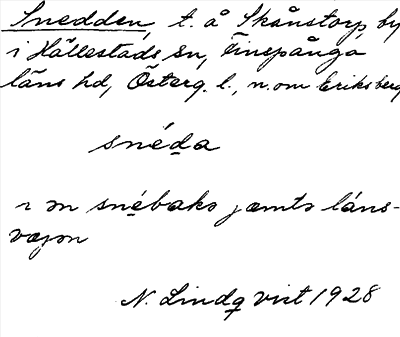 Snedden, t. å Skånstorp, by
i Hällestads sn, Finspånga
läns hd, Österg. l., n. om Eriksberg
snéda
i ən snébakə jæmtə láns-
vægən
N. Lindqvist 1928